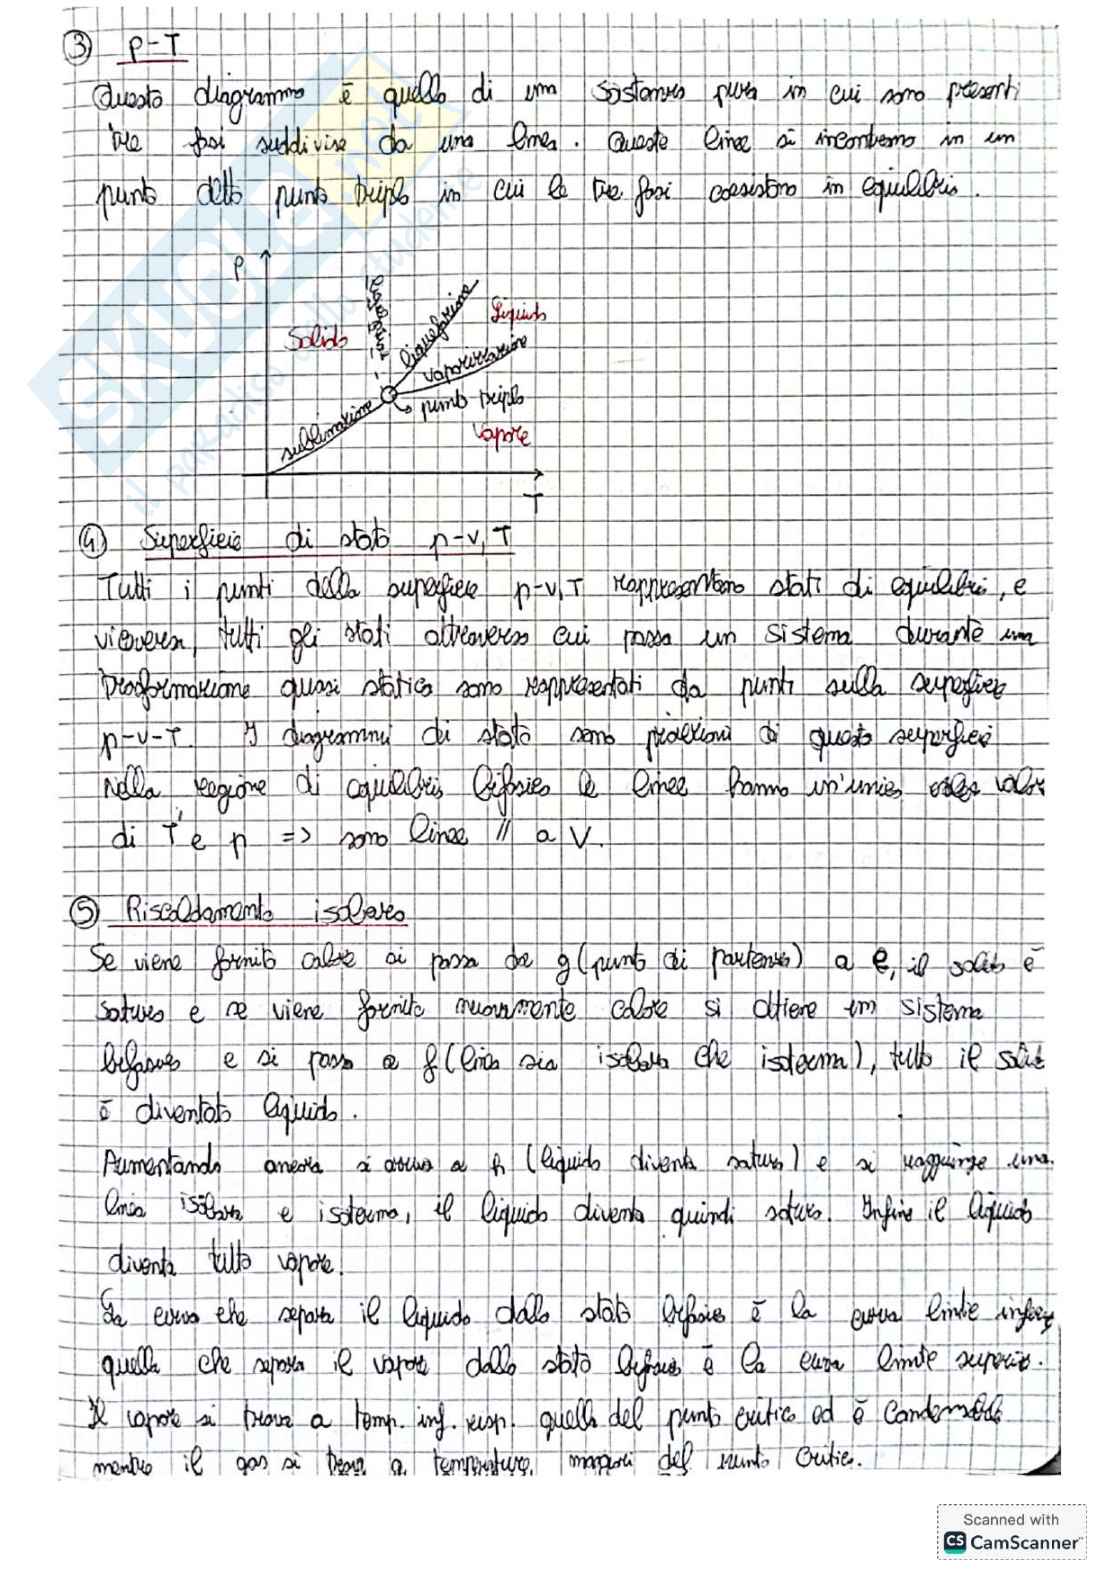 ③ P-T
Questo diagramma è quello di una sostanza pura in cui sono presenti
tre fasi suddivise da una linea. Queste linee si incontrano in un
punto detto punto triplo in cui le tre fasi coesistono in equilibrio.
P
Solido
liquefazione
Liquido
vaporizzazione
sublimazione
punto triplo
Vapore
T
④ Superficie di stato p-v,T
Tutti i punti della superficie p-v,T rappresentano stati di equilibrio, e
viceversa, tutti gli stati attraverso cui passa un sistema durante una
trasformazione quasi statica sono rappresentati da punti sulla superficie
p-v-T. I diagrammi di stato sono proiezioni di questa superficie
Nella regione di equilibrio bifasico le linee hanno un'unico valore
di T e p => sono linee // a V.
⑤ Riscaldamento isobaro
Se viene fornito calore si passa da g (punto di partenza) a e, il solido è
saturo e se viene fornito nuovamente calore si ottiene un sistema
bifasico e si passa a f (linea sia isobara che isoterma), tutto il solido
è diventato liquido.
Aumentando ancora si arriva a h (liquido diventa saturo) e si raggiunge una
linea isobara e isoterma, il liquido diventa quindi saturo. Infine il liquido
diventa tutto vapore.
La curva che separa il liquido dallo stato bifasico è la curva limite infer,
quella che separa il vapore dallo stato bifasico è la curva limite superiore.
Il vapore si trova a temp. inf. risp. quella del punto critico ed è condensabile
mentre il gas si trova a temperature maggiori del punto critico.
Scanned with
CS CamScanner